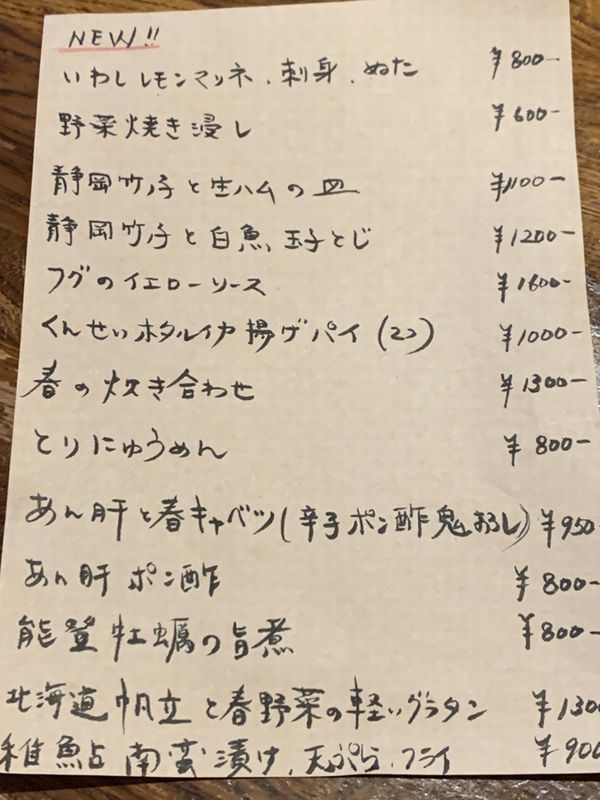 NEW!!
いわしレモンマリネ、刺身、ぬた ¥800-
野菜焼き浸し ¥600-
静岡竹ノ子と生ハムの皿 ¥1100-
静岡竹ノ子と白魚玉子とじ ¥1200-
フグのイエローソース ¥1600-
くんせいホタルイカ揚げパイ(2コ) ¥1000-
春の炊き合わせ ¥1300-
とりにゅうめん ¥800-
あん肝と春キャベツ(辛子ポン酢鬼おろし) ¥950-
あん肝ポン酢 ¥800-
能登牡蠣の旨煮 ¥800-
北海道帆立と春野菜の軽いグラタン ¥1300
稚鮎南蛮漬け、天ぷら、フライ ¥900